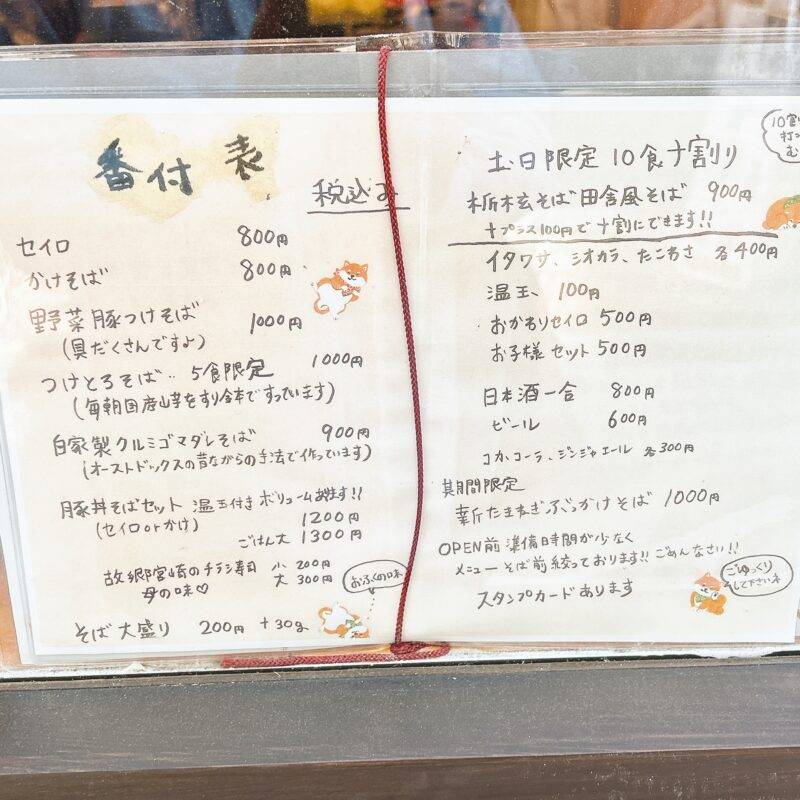 番付表
税込み
セイロ 800円
かけそば 800円
野菜豚つけそば 1000円
(具だくさんですよ)
つけとろそば‥5食限定 1000円
(毎朝国産山芋をすり全本ですっています)
自家製クルミゴマダレそば 900円
(オーストドックスの昔ながらの手法で作っています)
豚丼そばセット 温玉付き ボリュームあります!!
(セイロorかけ) 1200円
ごはん大 1300円
故郷宮崎のチラシ寿司 小 200円
母の味♡ 大 300円
おふくの味
そば大盛り 200円 +30g
土日限定10食十割り
10割
打っ
む
栃木玄そば田舎風そば 900円
+プラス100円で十割にできます!!
イタワサ、シオカラ、たこわさ 各400円
温玉、100円
おかわりセイロ 500円
お子様セット 500円
日本酒一合 800円
ビール 600円
コカ・コーラ、ジンジャエール 各300円
期間限定
新たまねぎぶっかけそば 1000円
OPEN前準備時間が少なく
メニューそば前絞っております!!ごめんなさい!!
ごゆっくり
して下さいネ
スタンプカードあります